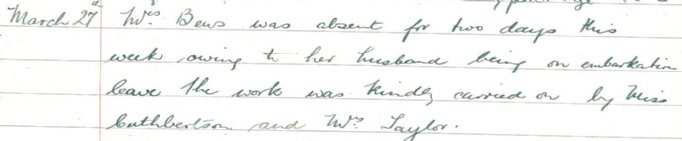 March 27th Mrs. Bews was absent for two days this
week owing to her husband being on embarkation
leave the work was kindly carried on by Miss
Cuthbertson and Mrs. Taylor.